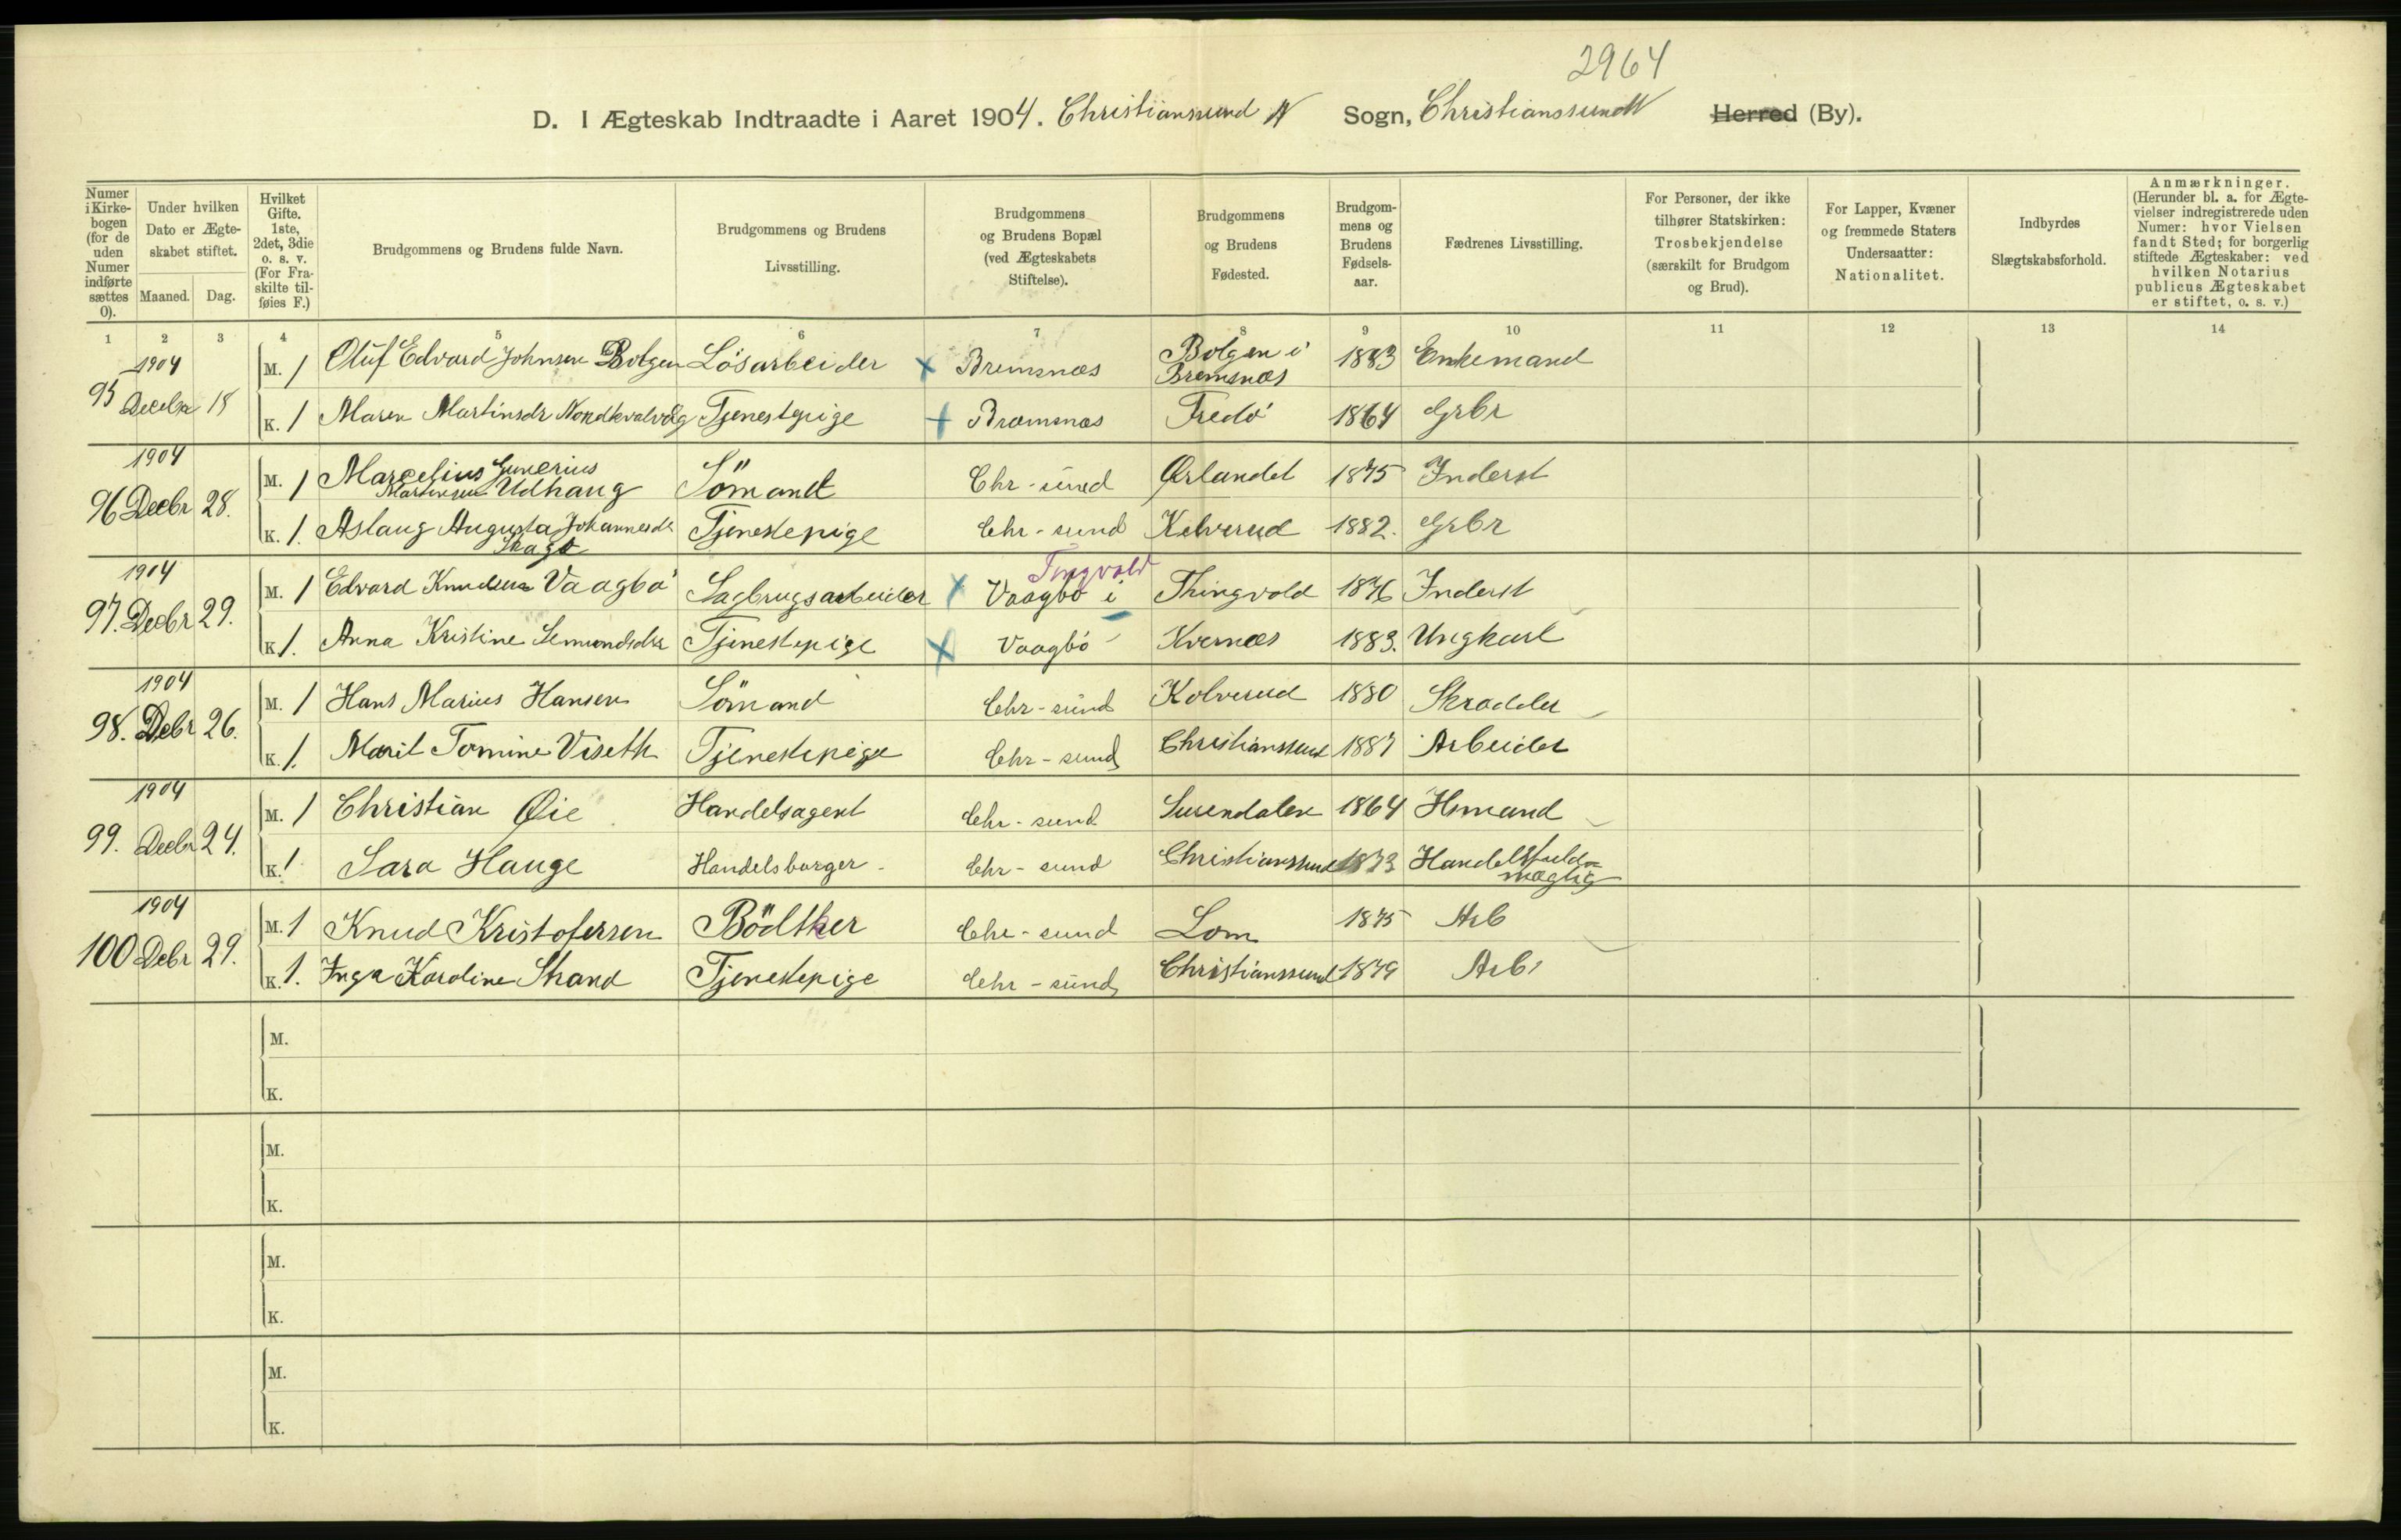 2964
D. I Ægteskab Indtraadte i Aaret 1904. Christianssund N Sogn, Christianssund N Herred (By).
Numer i Kirkebogen (for de uden Numer indførte sættes 0).
Under hvilken Dato er Ægteskabet stiftet.
Maaned. Dag.
Hvilket Gifte. 1ste, 2det, 3die o. s. v. (For Fraskilte tilføies F.)
Brudgommens og Brudens fulde Navn.
Brudgommens og Brudens Livsstilling.
Brudgommens og Brudens Bopæl (ved Ægteskabets Stiftelse).
Brudgommens og Brudens Fødested.
Brudgommens og Brudens Fødselsaar.
Fædrenes Livsstilling.
For Personer, der ikke tilhører Statskirken: Trosbekjendelse (særskilt for Brudgom og Brud).
For Lapper, Kvæner og fremmede Staters Undersaatter: Nationalitet.
Indbyrdes Slægtskabsforhold.
Anmærkninger. (Herunder bl. a. for Ægtevielser indregistrerede uden Numer: hvor Vielsen fandt Sted; for borgerlig stiftede Ægteskaber: ved hvilken Notarius publicus Ægteskabet er stiftet, o. s. v.)
1 2 3 4 5 6 7 8 9 10 11 12 13 14
1904
95 Decbr 18 M. 1 Oluf Edvard Johnsen Bolgen Lösarbeider x Bremsnæs Bolgen i Bremsnæs 1883 Enkemand
K. 1 Maren Martinsdr Nordkvalvåg Tjenestepige x Bremsnæs Fredö 1864 Grbr
1904
96 Decbr 28. M. 1 Marcelius Gunerius Martinsen Udhaug Sömand Chr-sund Ørlandet 1875 Inderst
K. 1. Aslaug Augusta Johannesdr Skagø Tjenestepige Chr-sund Kolvereid 1882. Grbr
1904 Tingvold
97. Decbr 29. M. 1 Edvard Knudsen Vaagbö Sagbrugsarbeider x Vaagbö i Thingvold 1876 Inderst
K. 1. Anna Kristine Semundsdr Tjenestepige x Vaagbö Kvernæs 1883. Ungkarl
1904
98. Debr 26. M. 1 Hans Marius Hansen Sömand Chr-sund Kolvereid 1880 Skrædder
K. 1. Marit Tomine Viseth Tjenestepige Chr-sund Christianssund 1887 Arbeider
1904
99. Decbr 24. M. 1 Christian Øie Handelsagent Chr-sund Surendalen 1864 Hmand
K. 1 Sara Hauge Handelsborger Chr-sund Christianssund 1873 Handelsfuldmægtig
1904
100 Debr 29. M. 1 Knud Kristofersen Bödtker Chr-sund Lom 1875 Arb
K. 1. Inga Karoline Strand Tjenestepige Chr-sund Christianssund 1879 Arb.
M.
K.
M.
K.
M.
K.
M.
K.